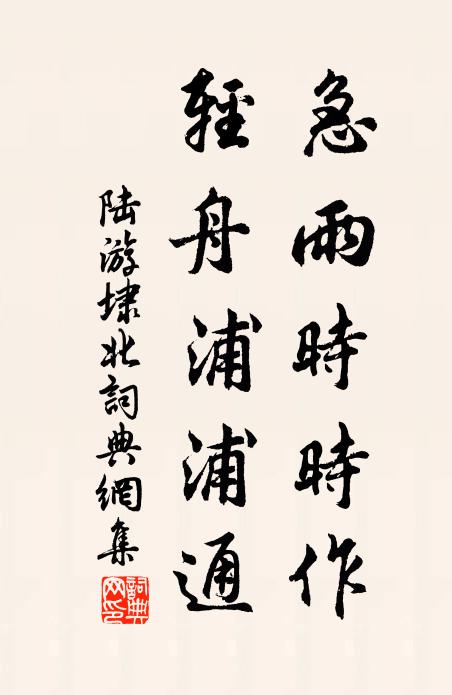 急雨時時作
輕舟浦浦通
陸游埭北詞典網集
詞典網印